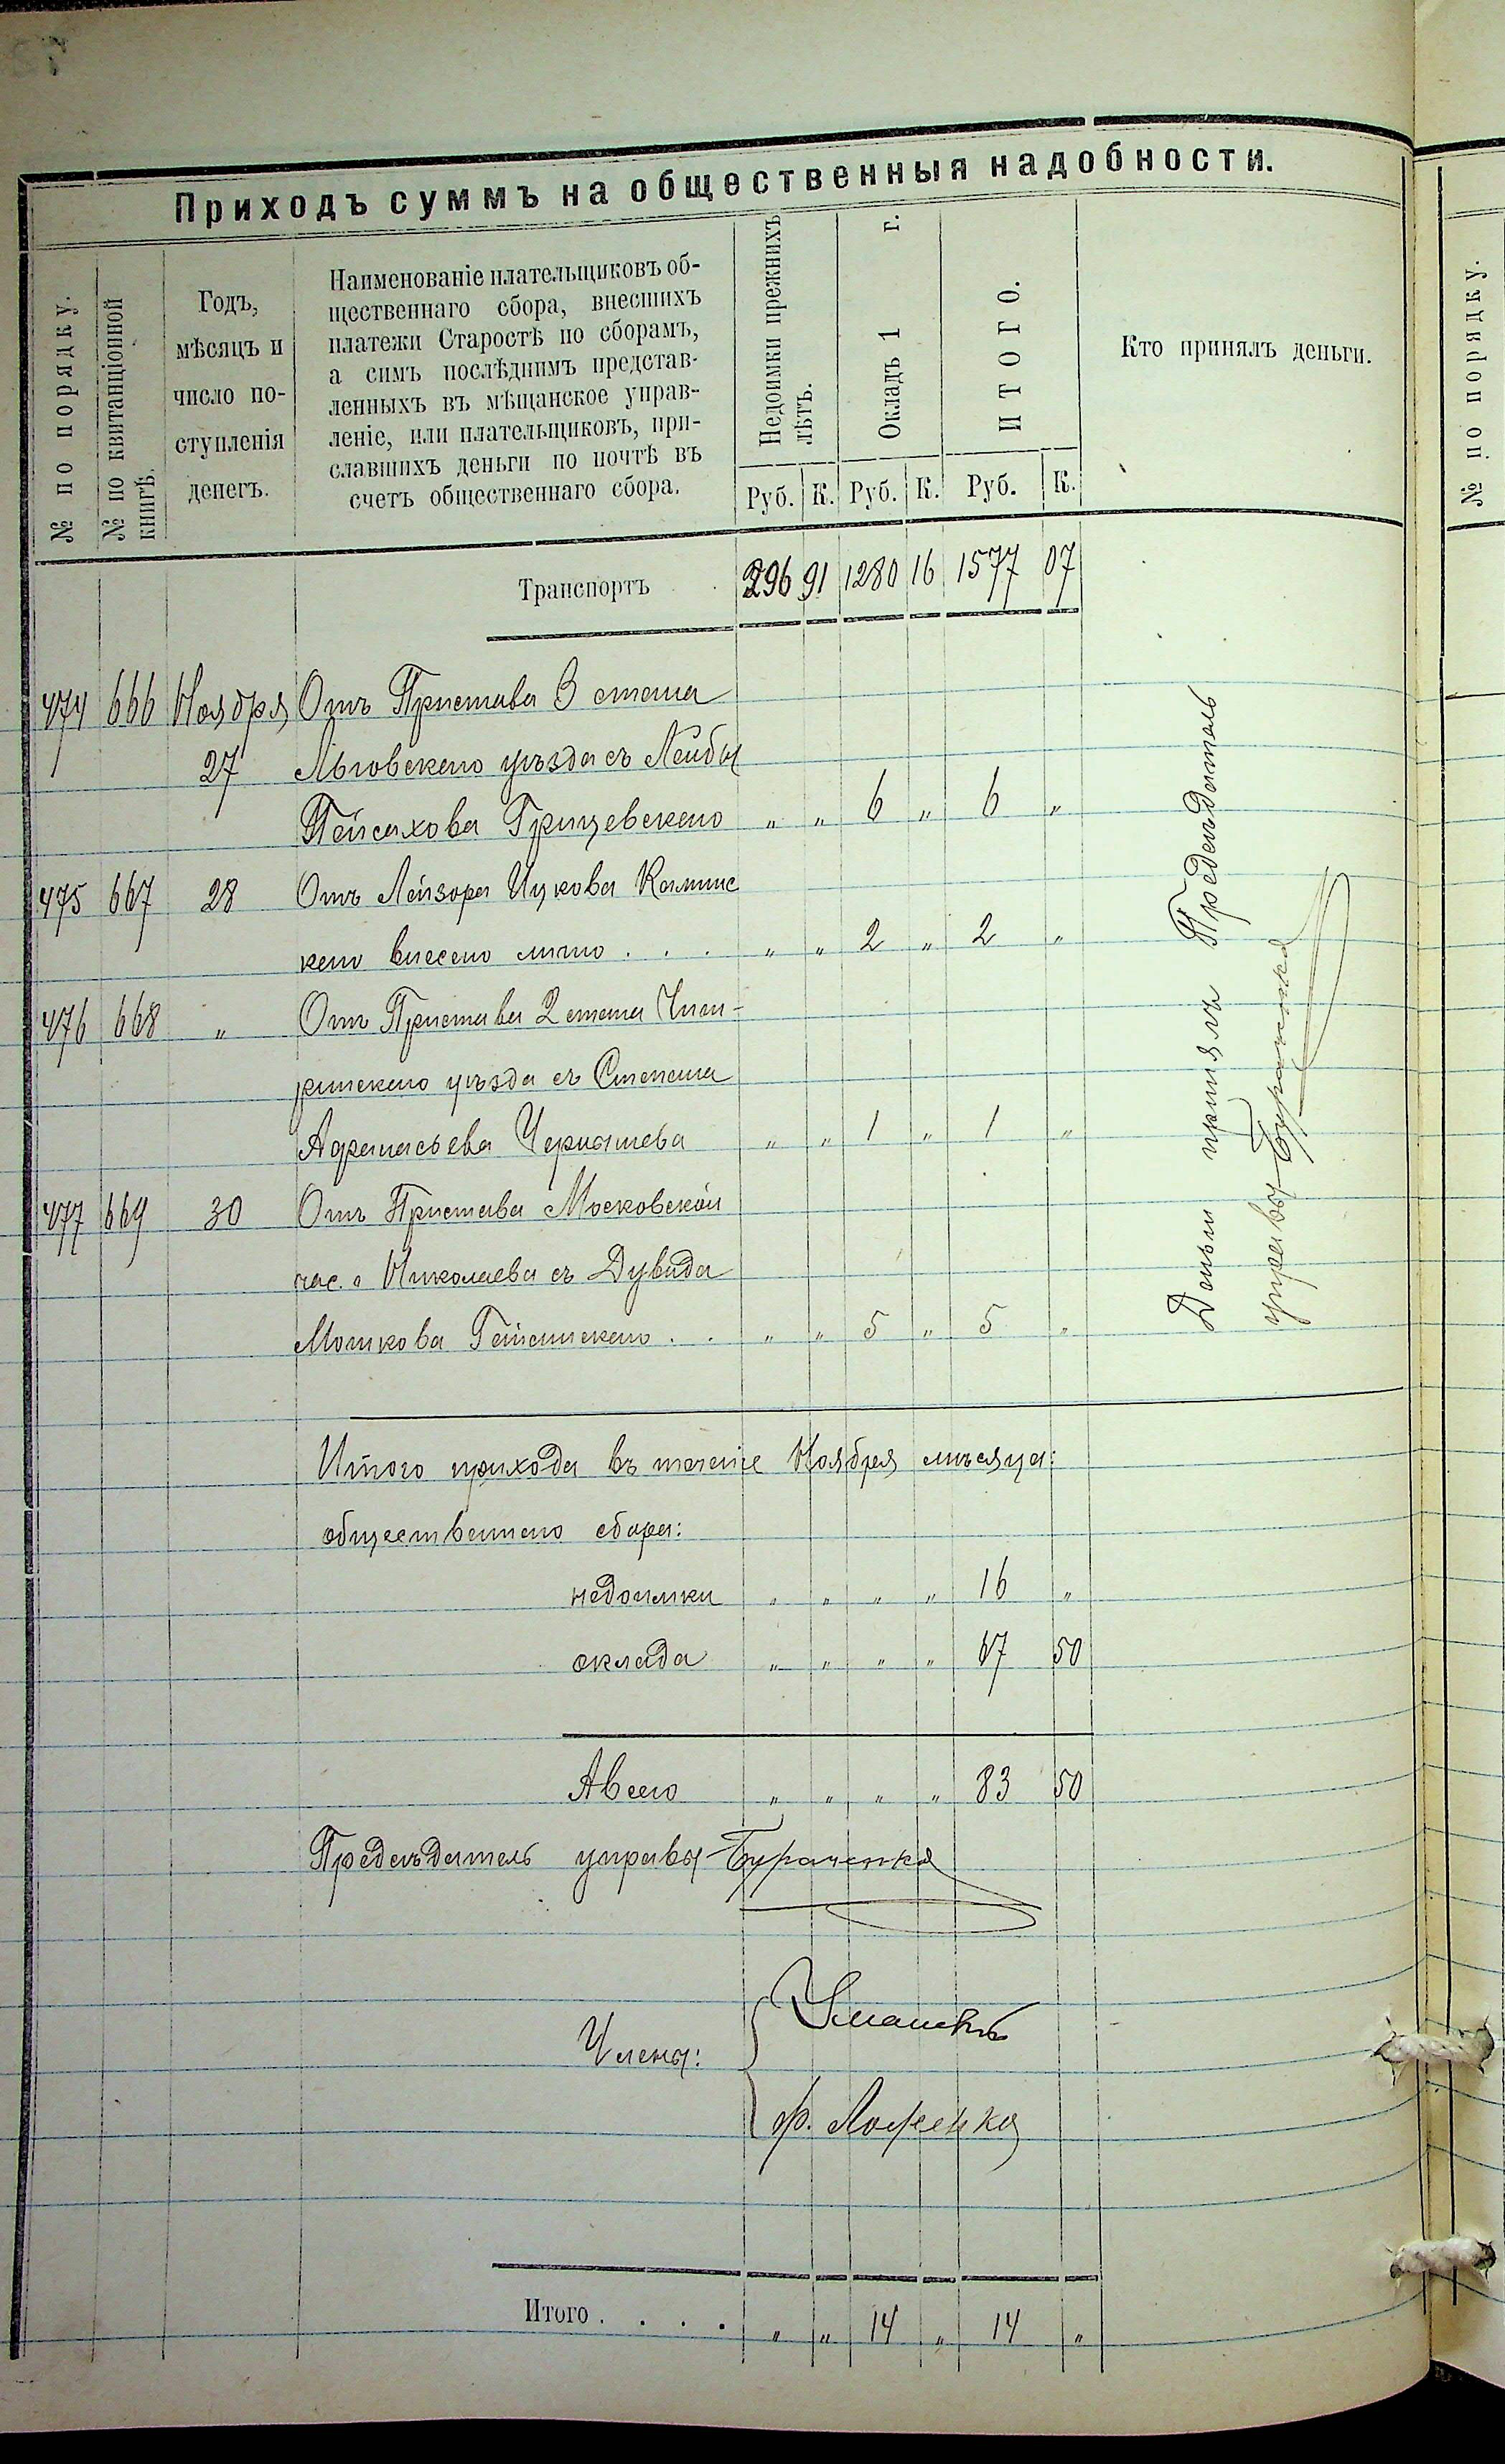 Приходъ суммъ на общественныя надобности.
№ по порядку.
№ по квитанціонной
книгѣ.
Годъ,
мѣсяцъ и
число по-
ступленія
денегъ.
Наименованіе плательщиковъ об-
щественнаго сбора, внесшихъ
платежи Старостѣ по сборамъ,
а симъ послѣднимъ представ-
ленныхъ въ мѣщанское управ-
леніе, или плательщиковъ, при-
славшихъ деньги по почтѣ въ
счетъ общественнаго сбора.
Недоимки прежнихъ
лѣтъ.
Окладъ 1 г.
ИТОГО.
Кто принялъ деньги.
Руб. К. Руб. К. Руб. К.
Транспортъ 296 91 1280 16 1577 07
474 666 Ноября Отъ Пристава 3 стана
27 Льговскаго уѣзда съ Лейбы
Пейсахова Грищевскаго " " 6 " 6 "
475 667 28 Отъ Лейзора Ицкова Каминс
каго внесено лично . . . " " 2 " 2 "
476 668 " Отъ Пристава 2 стана Чиги-
ринскаго уѣзда съ Степана
Афанасьева Чернышева " " 1 " 1 "
477 669 30 Отъ Пристава Московской
час. г Николаева съ Дувида
Мошкова . . " " 5 " 5 "
Деньги принялъ Предсѣдатель
управы Бураченко
Итого прихода въ теченіе Ноября мѣсяца:
общественнаго сбора:
недоимки " " " " 16 "
оклада " " " " 67 50
А всего " " " " 83 50
Предсѣдатель управы Бураченко
Члены:
Уманскій
Ф.
Итого . . . . " " 14 " 14 "
№ по порядку.